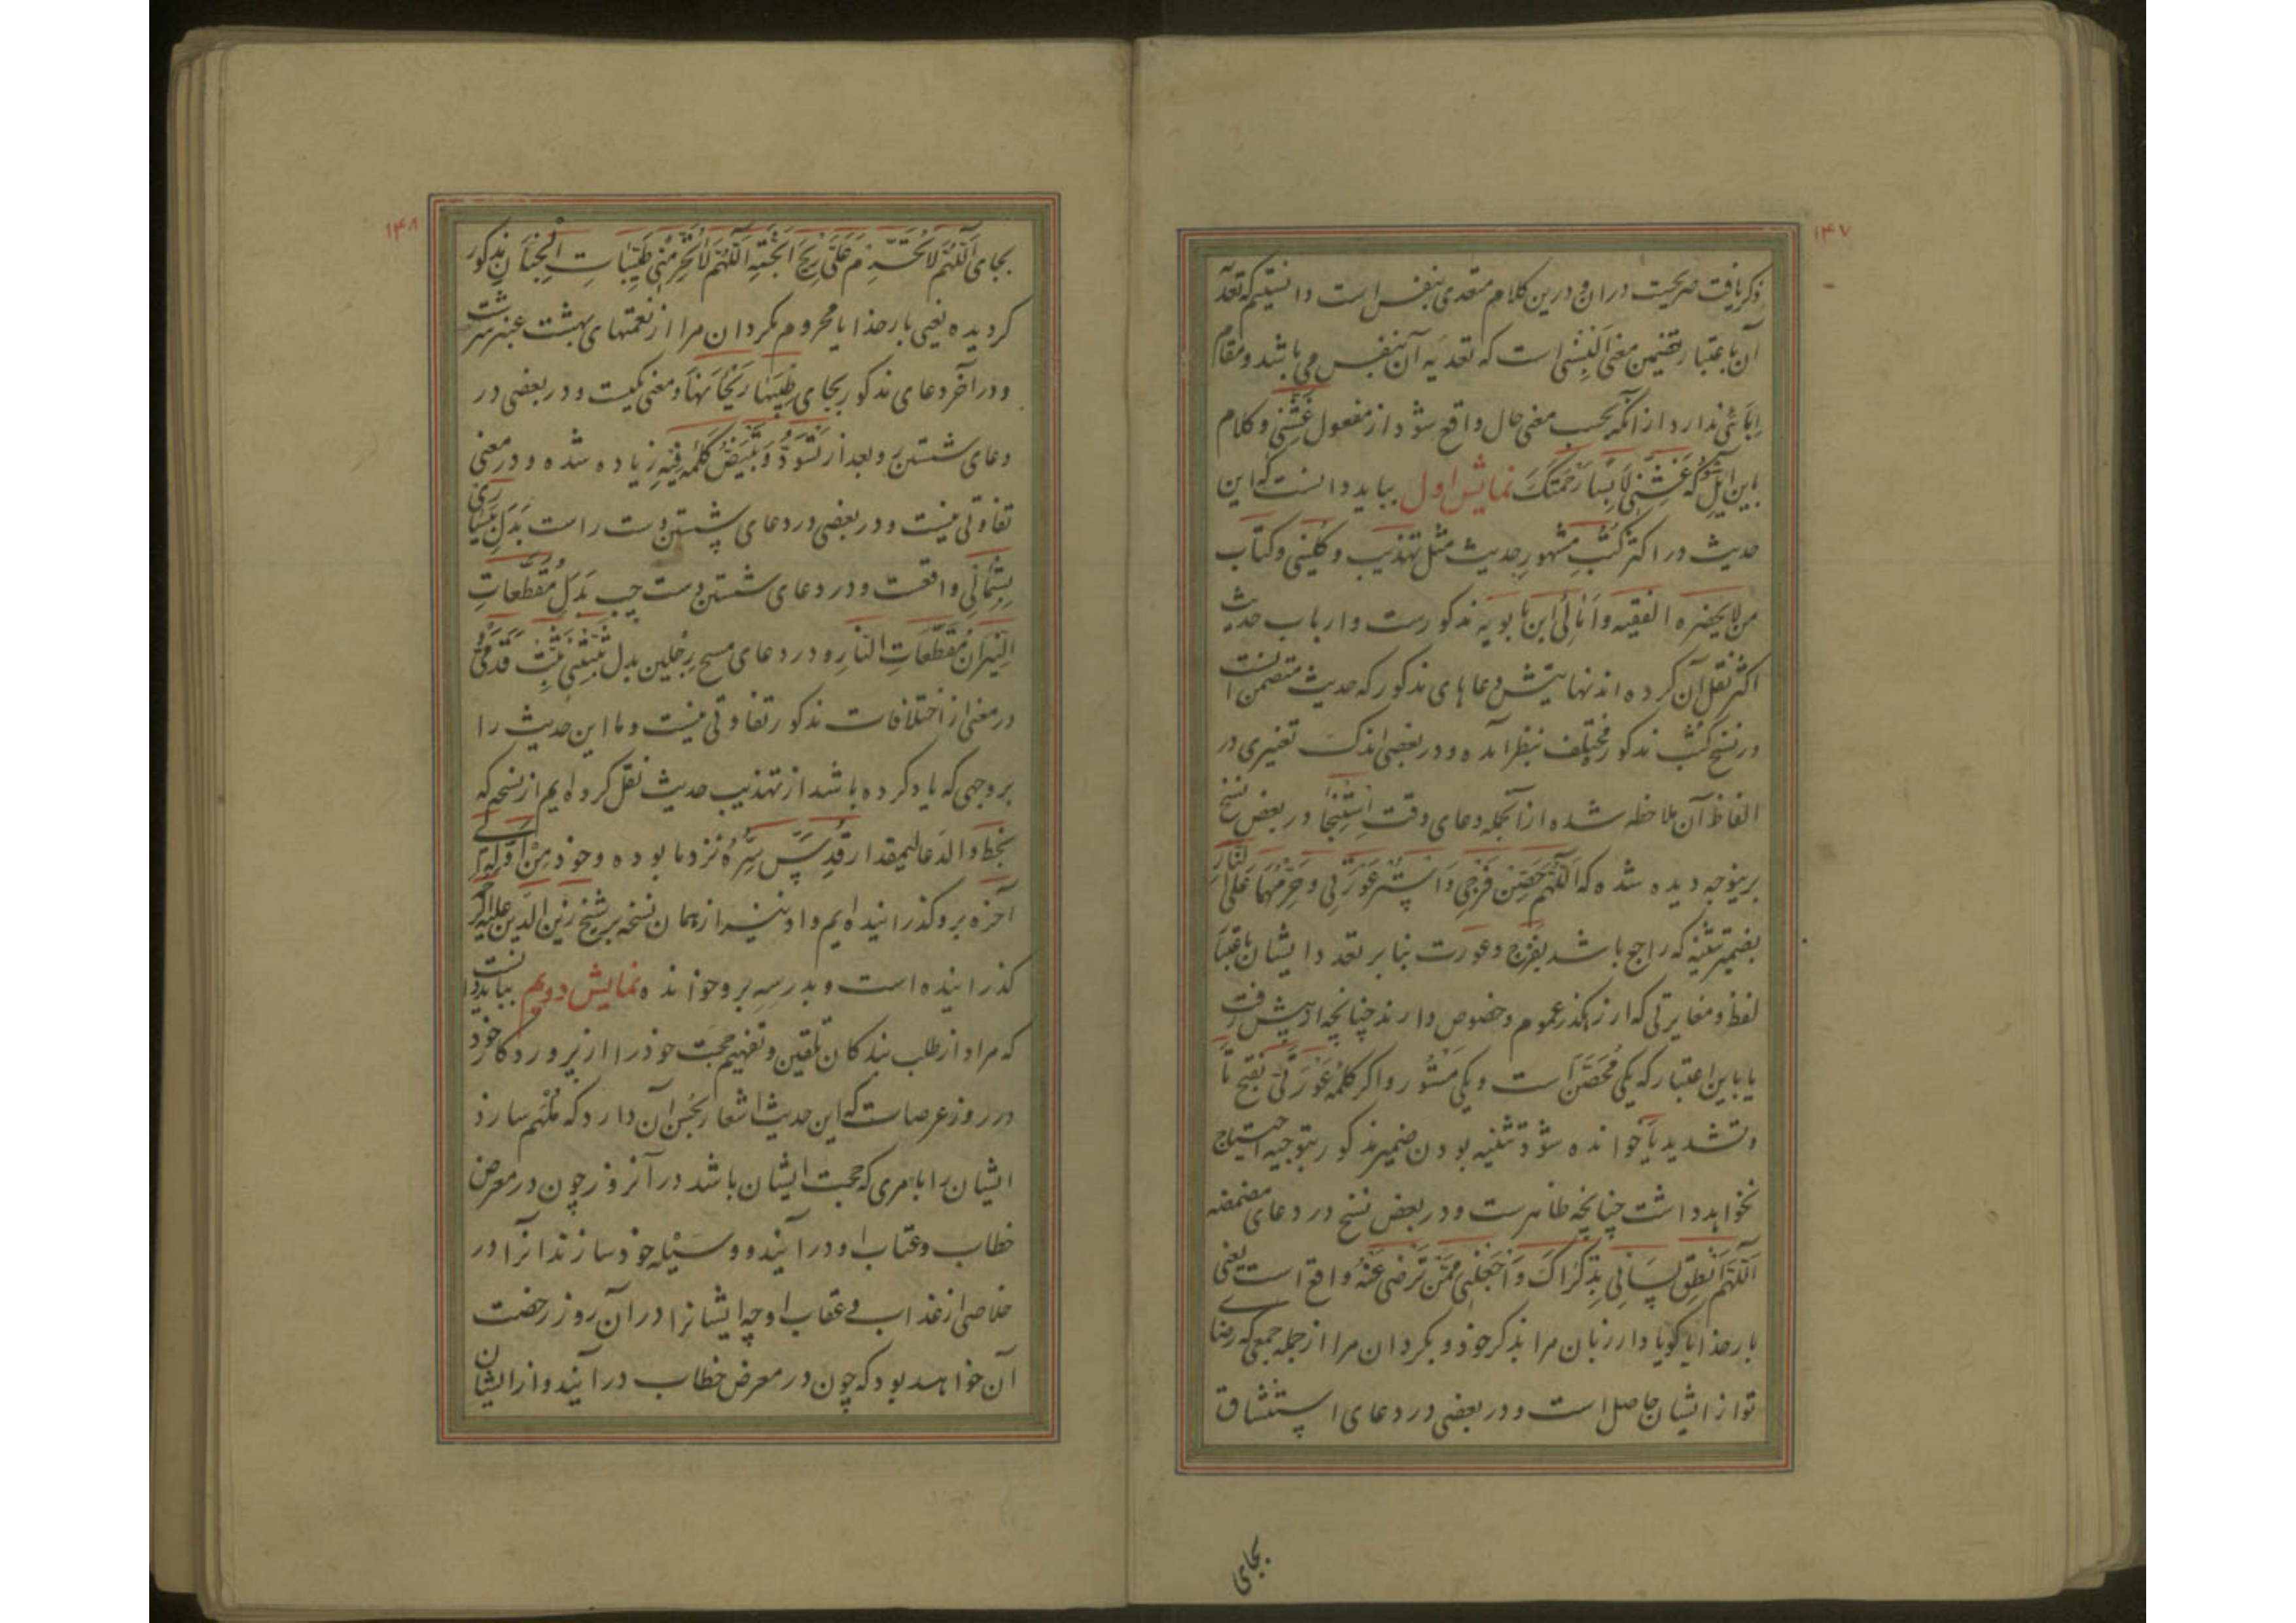 ۱۴۷
ذکر یافت صریحیت در ان و درین کلام متعدی بنفس است دانستیم که تعدیه
آن باعتبار تضمین معنی اَلبِسْنِی است که تعدیه آن بنفس می باشد و مقام
اِبائی ندارد از انکه بحسب معنی حال واقع شود از مفعول غَشِّنِی و کلام
باین ایل شود که غَشِّنِی لَابِسًا رَحْمَتَکَ نمایش اول بباید دانست که این
حدیث در اکثر کُتُبِ مشهورِ حدیث مثل تهذیب و کُلینی و کتاب
من لا یحضره الفقیه و اَمالی ابن بابویه مذکورست و ارباب حدیث
اکثر نقل آن کرده اند نهایتش دعاهای مذکور که حدیث متضمن انست
در نسخ کُتُب مذکور مختلف بنظر آمده و در بعضی اندک تغییری در
الفاظ آن ملاحظه شده از آنجمله دعای وقت اِستِنجا در بعض نسخ
برینوجه دیده شده که اَللّهُمَّ حَصِّن فَرْجِی وَ اسْتُر عَوْرَتِی وَ حَرِّمْهُمَا عَلَی النَّارِ
بضمیر تثنیه که راجع باشد بفرج و عورت بنا بر تعدد ایشان باعتبار
لفظ و مغایرتی که از رهگذر عموم و خصوص دارند چنانچه از پیش رفت
یا باین اعتبار که یکی مُحَصَّن است و یکی مَسْتُور و اکر کلمه عَوْرَتَیَّ بفتح تا
و تشدید یا خوانده شود تثنیه بودن ضمیر مذکور بتوجیه احتیاج
نخواهد داشت چنانچه ظاهرست و در بعض نسخ در دعای مضمضه
اَللّهُمَّ اَنْطِق لِسَانِی بِذِکْرَاکَ وَ اجْعَلْنِی مِمَّنْ تَرضی عَنْهُ واقع است یعنی
بار خذایا کویا دار زبان مرا بذکر خوذ و بکردان مرا از جمله جمعی که رضای
تو از ایشان حاصل است و در بعضی در دعای استنشاق
بجای
۱۴۸
بجای اَللّهُمَّ لَا تُحَرِّمْ عَلَیَّ رِیحَ الْجَنَّةِ اَللّهُمَّ لَا تَحْرِمْنِی طَیِّبَاتِ الْجِنَانِ مذکور
کردیده یعنی بار خذایا محروم مکردان مرا از نعمتهای بهشت عنبر سرشت
و در آخر دعای مذکور بجای طِیبَهَا رَیْحَانَهَا و معنی یکیست و در بعضی در
دعای شستن رو بعد از تَسْوَدُّ وَ تَبْیَضُّ کلمه فِیهِ زیاده شده و در معنی
تفاوتی نیست و در بعضی در دعای شستن دست راست بَدَلِ بِیَسَارِی
بِشِمَالِی واقعست و در دعای شستن دست چپ بَدَل مُقَطَّعَاتِ
النِّیرَان مُقَطَّعَاتِ النَّارِ و در دعای مسح رِجلین بدل ثَبِّتْنِی ثَبِّتْ قَدَمَیَّ و
در معنی از اختلافات مذکور تفاوتی نیست و ما این حدیث را
بر وجهی که یاد کرده باشد از تهذیب حدیث نقل کرده ایم از نسخه که
بخط والد عالیمقدار قُدِّسَ سِرُّهُ نزد ما بوده و خود مِنْ اَوَّلِهِ اِلی
آخِرِه برو کذرانیده ایم و او نیز از همان نسخه بر شیخ زین الدین علیه الرحمه
کذرانیده است و بدرسه برو خوانده نمایش دویم بباید دانست
که مراد از طلب بندکان تلقین و تفهیم حجت خود را از پروردکار خود
در روز عرصات که این حدیث اشعار بحُسن آن دارد که مُلْهَم سازد
ایشان را بامری که حجت ایشان باشد در آنروز چون در معرض
خطاب و عتاب او درآیند و وسیله خود سازند انرا در
خلاصی از عذاب و عقاب او چه ایشانرا در آن روز رخصت
آن خواهد بود که چون در معرض خطاب درآیند و از ایشان